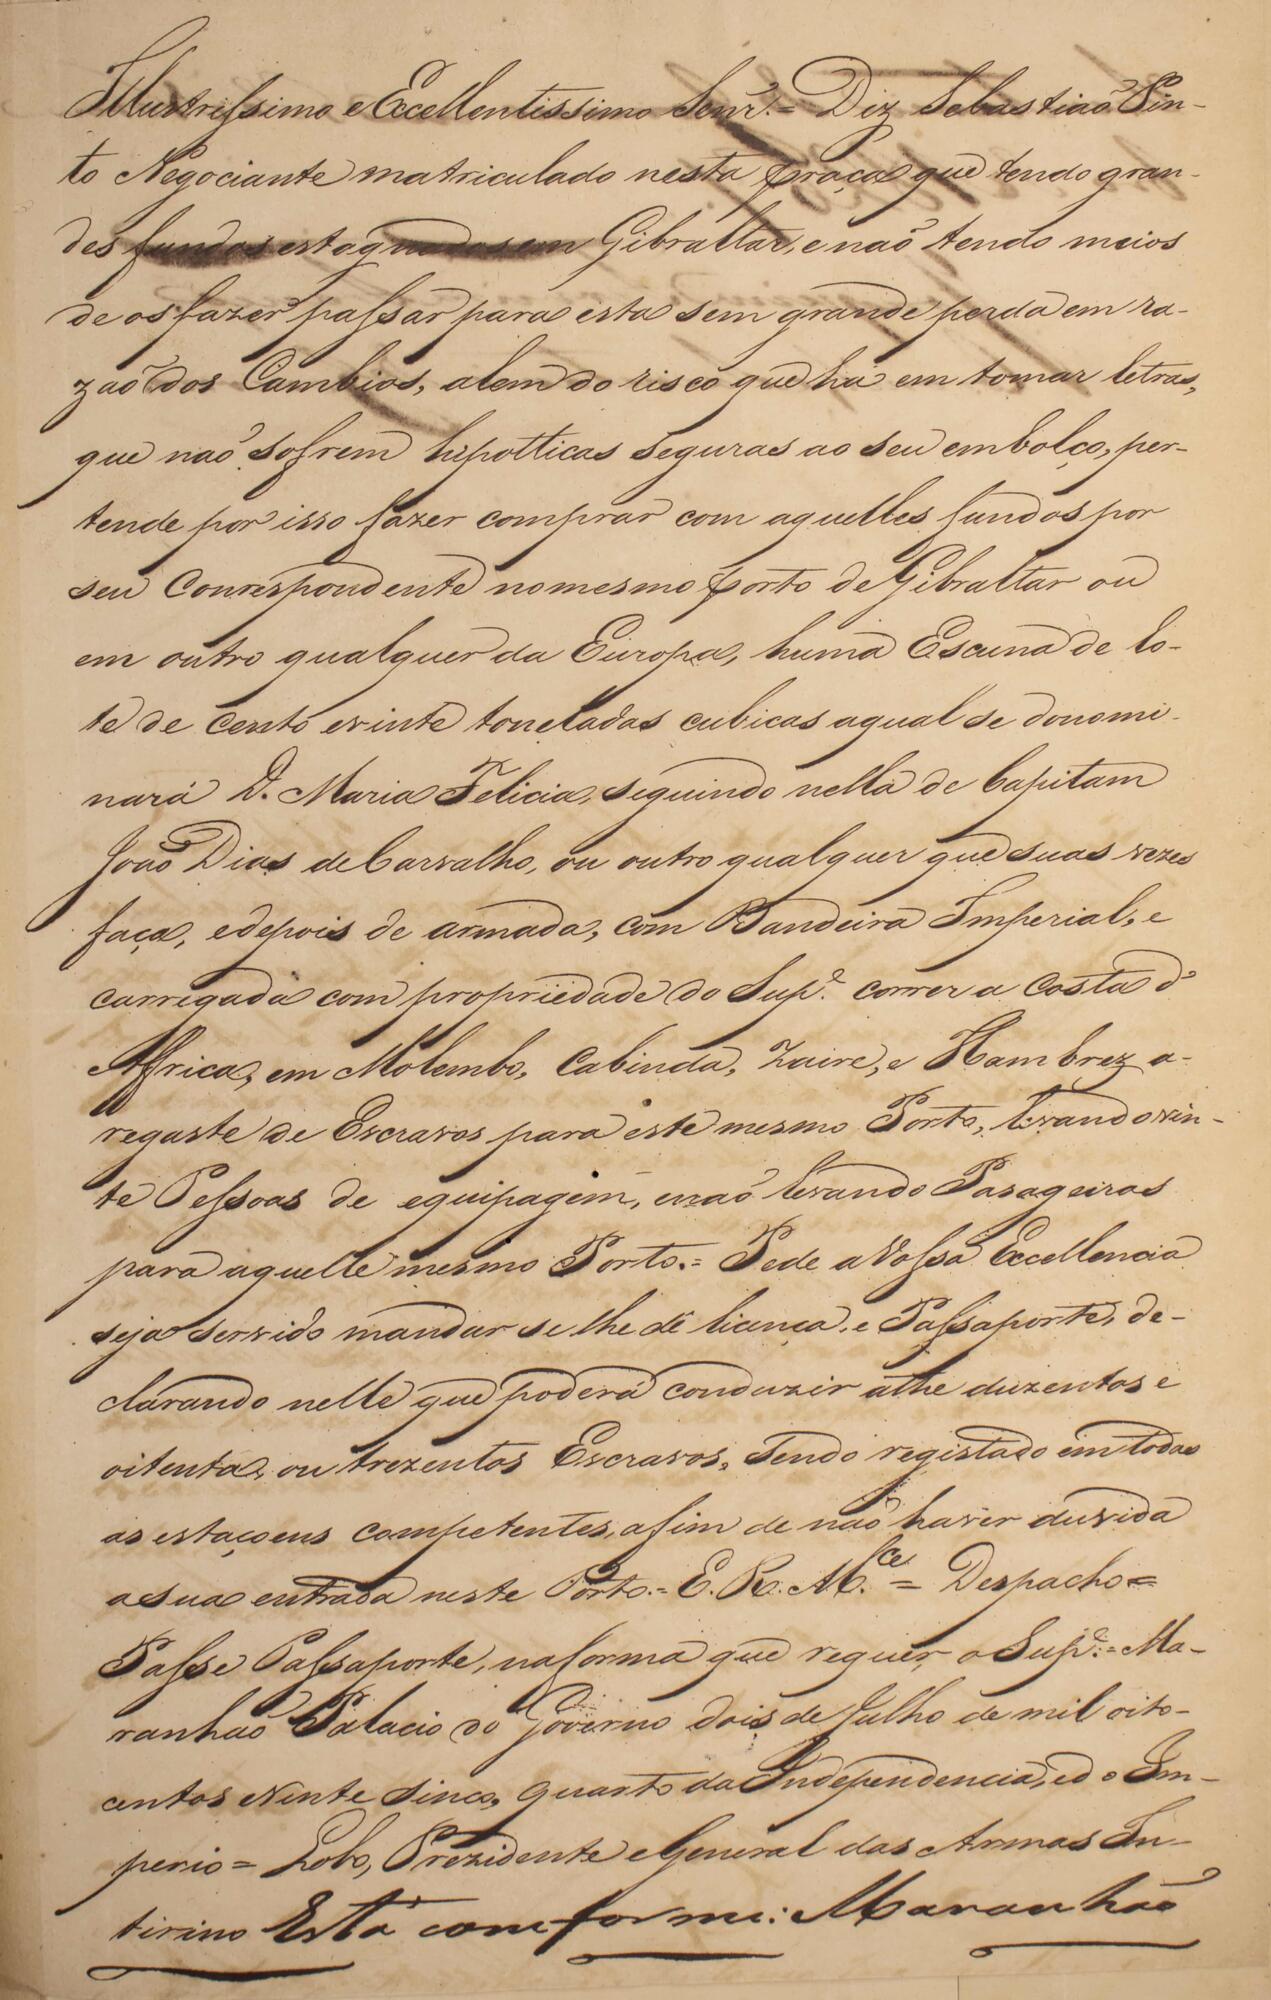 Illustrissimo e Excellentissimo Senr. = Diz Sebastiaõ Pin-
to Negociante matriculado nesta praça que tendo gran-
des fundos estagnados em Gibraltar, e naõ tendo meios
de os fazer passar para esta sem grande perda em ra-
zaõ dos Cambios, alem do risco que há em tomar letras,
que naõ sofrem hipotticas seguras ao seu embolço, per-
tende por isso fazer comprar com aquelles fundos por
seu Correspondente no mesmo porto de Gibraltar ou
em outro qualquer da Europa, huma Escuna de lo-
te de cento e vinte toneladas cubicas a qual se donomi-
nará D. Maria Felicia, seguindo nella de Capitam
Joaõ Dias de Carvalho, ou outro qualquer que suas vezes
faça, e depois de armada, com Bandeira Imperial, e
carregada com propriedade do Supe. correr a Costa d'
Affrica, em Molembo, Cabinda, Zaire, e Hambrez a-
regaste de Escravos para este mesmo Porto, levando vin-
te Pessoas de equipagem, e naõ levando Pasageiros
para aquelle mesmo Porto. = Pede a Vossa Excellencia
seja servido mandar se lhe dê licença, e Passaporte, de-
clarando nelle que poderá conduzir athe duzentos e
oitenta, ou trezentos Escravos, sendo registado em todas
as estaçoens competentes, afim de naõ haver duvida
a sua entrada neste Porto. = E. R. M.ce = Despacho =
Passe Passaporte, na forma que requer o Supe. = Ma-
ranhaõ Palacio do Governo dois de Julho de mil oito-
centos e vinte sinco, quarto da Independencia, e do Im-
perio = Lobo, Prezidente e General das Armas In-
tirino Está comforme: Maranhão